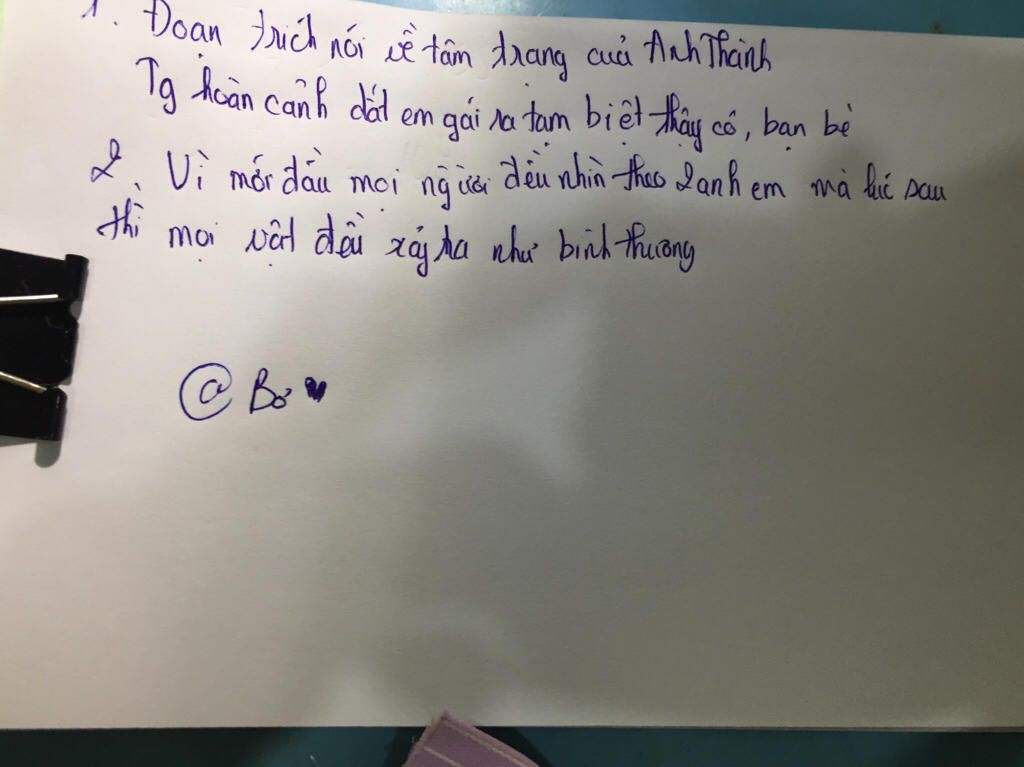 1. Đoạn trích nói về tâm trạng cuả Anh Thành
Tg hoàn cảnh dắt em gái ra tạm biệt thầy cô, bạn bè
2. Vì mới đầu mọi người đều nhìn theo 2 anh em mà lúc sau
thì mọi vật đều xảy ra như bình thường
@ Bơ ♥